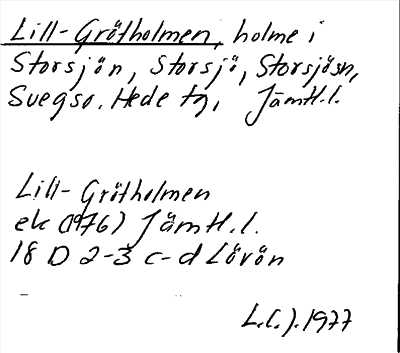 Lill-Grötholmen, holme i
Storsjön, Storsjö, Storsjösn,
Svegso. Hede tg, Jämtl.l.
Lill-Grötholmen
ek (1976) Jämtl.l.
18 D 2-3 c-d Lövön
L.C.J. 1977